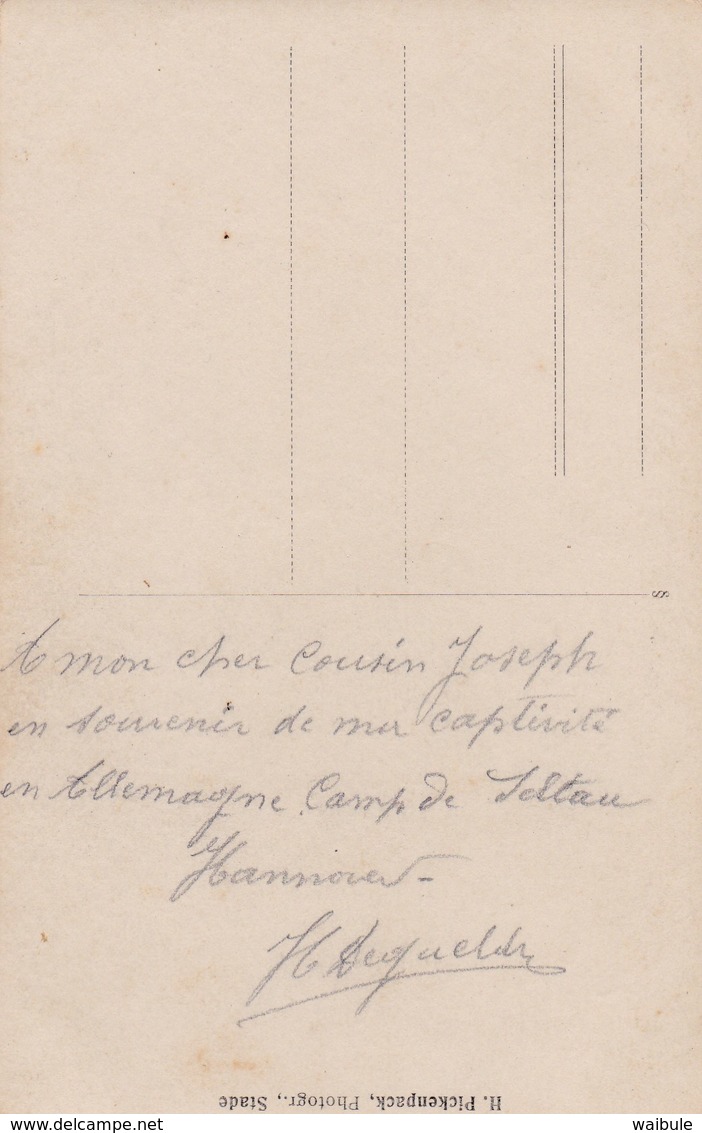 A mon cher Cousin Joseph
en souvenir de ma captivité
en Allemagne Camp de Soltau
Hannover -
H
H. Pickenpack, Photogr., Stade
delcampe.net
waibule